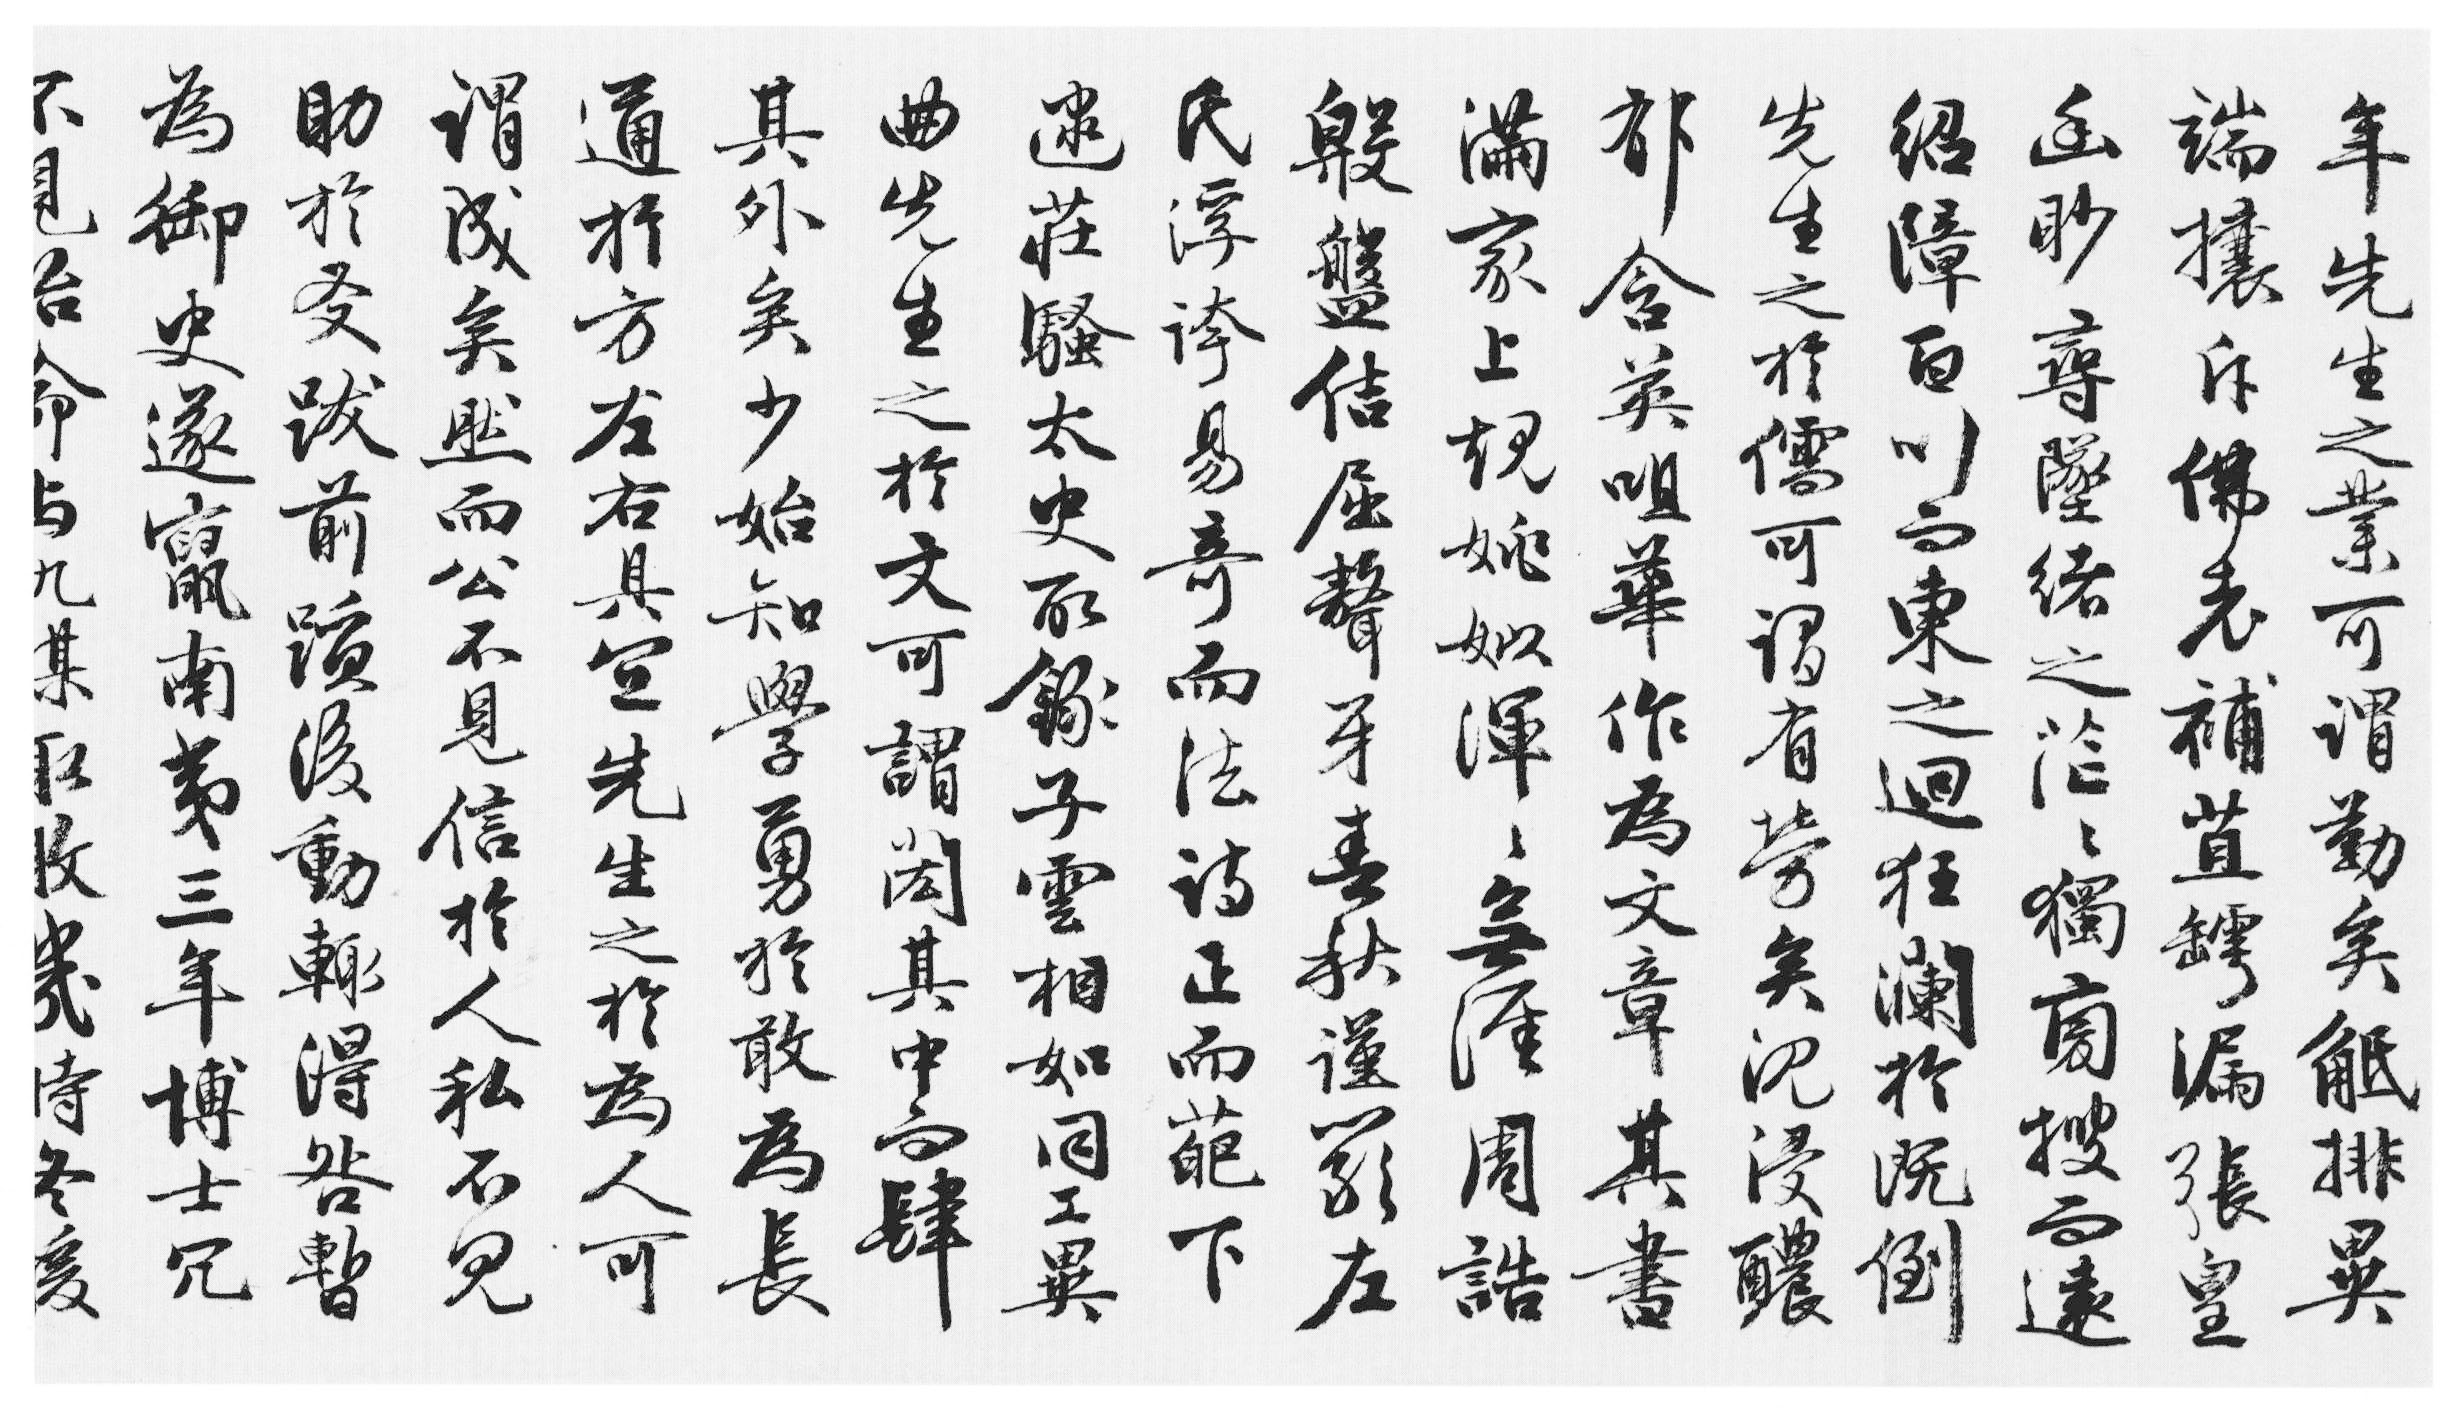 年先生之業可謂勤矣觝排異
端攘斥佛老補苴罅漏張皇
幽眇尋墜緒之茫〻獨旁搜而遠
紹障百川而東之迴狂瀾於既倒
先生之於儒可謂有勞矣沉浸醲
郁含英咀華作為文章其書
滿家上規姚姒渾〻無涯周誥
殷盤佶屈聱牙春秋謹嚴左
氏浮誇易奇而法詩正而葩下
逮莊騷太史所錄子雲相如同工異
曲先生之於文可謂閎其中而肆
其外矣少始知學勇於敢為長
通於方左右具宜先生之於為人可
謂成矣然而公不見信於人私不見
助於友跋前躓後動輒得咎暫
為御史遂竄南夷三年博士冗
不見治命与仇謀取敗幾時冬煖